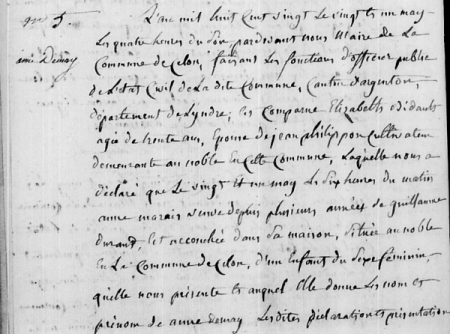 n° 5.
anne Demay
L'an mil huit Cent vingt Le vingt et un may
Les quatre heures du Soir pardevant nous Maire de La
Commune de Celon, faisant Les fonctions d'officier public
de L'etat Civil de La dite Commune, Canton d'argenton,
département de Lyndre, Est Comparue Elizabeth
agée de trente ans, Epouse de jean philippon Cultivateur
demeurante au noble En Cette Commune, Laquelle nous a
déclaré que Le vingt et un may Les Six heures du matin
anne marais veuve depuis plusieurs années de guillaume
durand, Est accouchée dans Sa maison, Située au noble
En La Commune de Celon, d'un Enfant du Sexe féminin,
quelle nous présente et auquel Elle donne Les nom et
prénom de anne demay Les dites déclaration et présentation